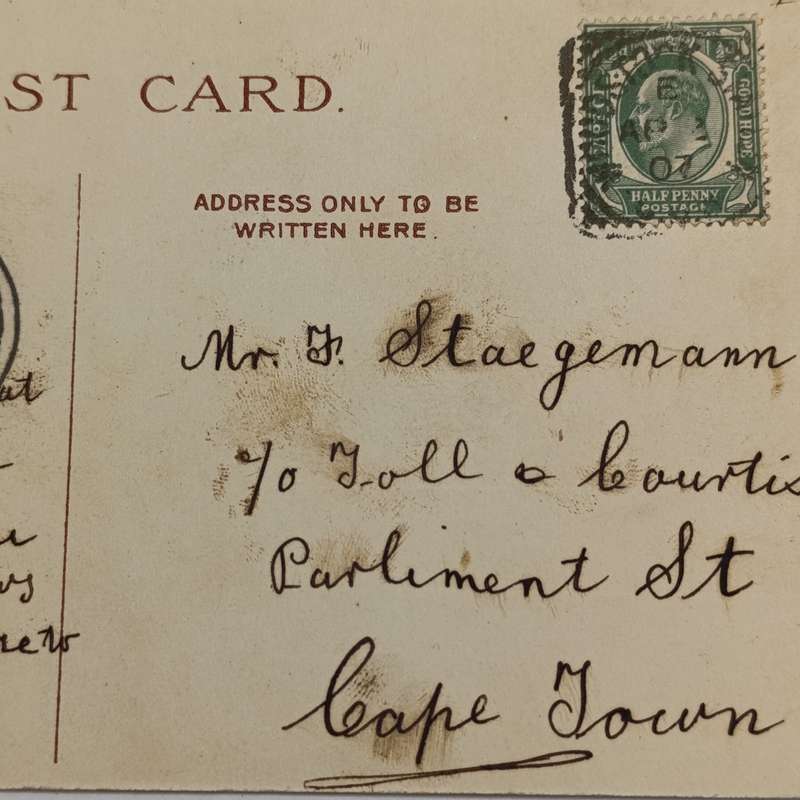 ST CARD.
ADDRESS ONLY TO BE
WRITTEN HERE.
GOOD HOPE
AP
07
HALFPENNY
POSTAGE
Mr. F. Staegemann
c/o Toll & Courtis
Parliment St
Cape Town
at
new